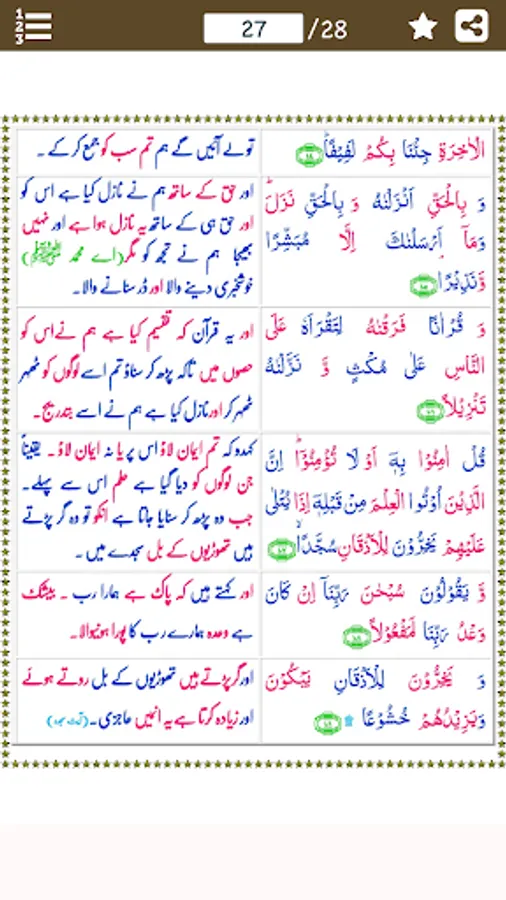 1
2
3
27 /28
الْاٰخِرَةِ جِئْنَا بِكُمْ لَفِيْفًاؕ
تولے آئیں گے ہم تم سب کو جمع کرکے ۔
وَ بِالْحَقِّ اَنْزَلْنٰهُ وَ بِالْحَقِّ نَزَلَؕ
وَمَاۤ اَرْسَلْنٰكَ اِلَّا مُبَشِّرًا
وَّنَذِيْرًا
اور حق کے ساتھ ہم نے نازل کیا ہے اس کو
اور حق ہی کے ساتھ یہ نازل ہوا ہے اور نہیں
بھیجا ہم نے تجھ کو مگر(اے محمد ﷺ)
خوشخبری دینے والا اور ڈر سنانے والا۔
وَ قُرْاٰنًا فَرَقْنٰهُ لِتَقْرَاَهٗ عَلَى
النَّاسِ عَلٰى مُكْثٍ وَّ نَزَّلْنٰهُ
تَنْزِيْلًا
اور یہ قرآن کہ تقسیم کیا ہے ہم نے اس کو
حصوں میں تاکہ پڑھ کر سناؤ تم اسے لوگوں کو ٹھہر
ٹھہر کر اور نازل کیا ہے ہم نے اسے بتدریج۔
قُلْ اٰمِنُوْا بِهٖۤ اَوْ لَا تُؤْمِنُوْاؕ اِنَّ
الَّذِيْنَ اُوْتُوا الْعِلْمَ مِنْ قَبْلِهٖۤ اِذَا يُتْلٰى
عَلَيْهِمْ يَخِرُّوْنَ لِلْاَذْقَانِ سُجَّدًا
کہدو کہ تم ایمان لاؤ اس پر یا نہ ایمان لاؤ۔ یقیناً
جن لوگوں کو دیا گیا ہے علم اس سے پہلے۔
جب وہ پڑھ کر سنایا جاتا ہے انکو تو وہ گر پڑتے
ہیں تھوڑیوں کے بل سجدے میں ۔
وَّ يَقُوْلُوْنَ سُبْحٰنَ رَبِّنَاۤ اِنْ كَانَ
وَعْدُ رَبِّنَا لَمَفْعُوْلًا
اور کہتے ہیں کہ پاک ہے ہمارا رب ۔ بیشک
ہے وعدہ ہمارے رب کا پورا ہونیوالا۔
وَ يَخِرُّوْنَ لِلْاَذْقَانِ يَبْكُوْنَ
وَيَزِيْدُهُمْ خُشُوْعًا
اور گر پڑتے ہیں تھوڑیوں کے بل روتے ہوئے
اور زیادہ کرتا ہے یہ انہیں عاجزی۔